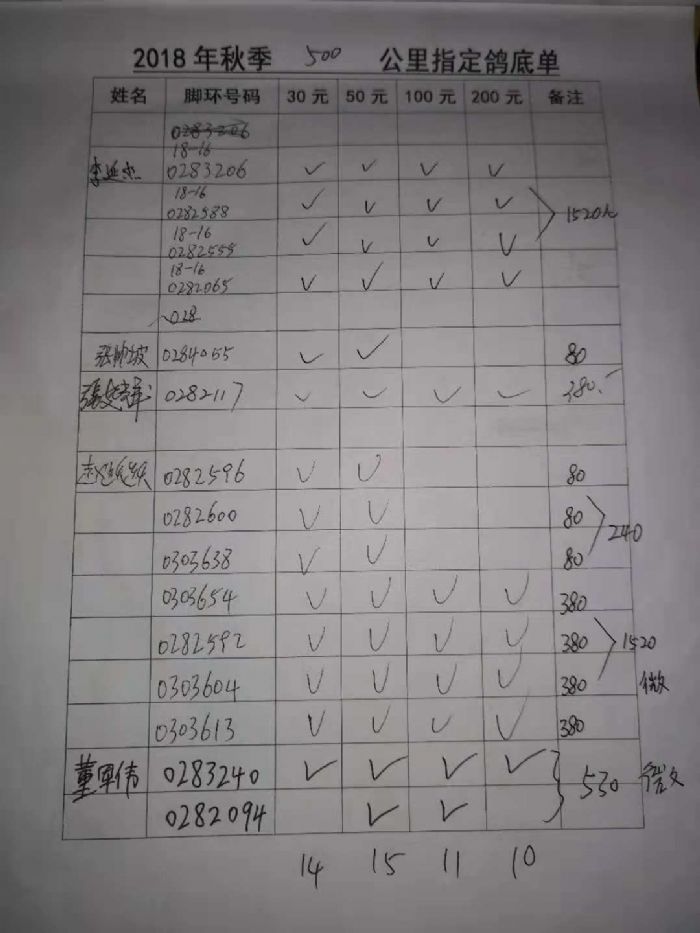 2018年秋季 500 公里指定鸽底单
姓名 脚环号码 30元 50元 100元 200元 备注
0283206
18-16
李延杰 0283206 ✓ ✓ ✓ ✓
18-16
0282588 ✓ ✓ ✓ ✓ 1520元
18-16
0282555 ✓ ✓ ✓ ✓
18-16
0282065 ✓ ✓ ✓ ✓
028
0284055 ✓ ✓ 80
0282117 ✓ ✓ ✓ ✓ 380.-
0282596 ✓ ✓ 80
0282600 ✓ ✓ 80 240
0303638 ✓ ✓ 80
0303654 ✓ ✓ ✓ ✓ 380
0282592 ✓ ✓ ✓ ✓ 380 1520
0303604 ✓ ✓ ✓ ✓ 380
0303613 ✓ ✓ ✓ ✓ 380
董军伟 0283240 ✓ ✓ ✓ ✓ 530
0282094 ✓ ✓
14 15 11 10